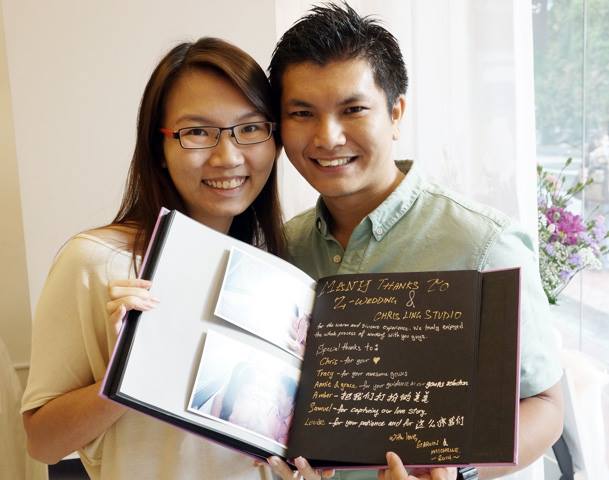 MANY THANKS TO
Z-WEDDING &
CHRIS LING STUDIO
for the warm and sincere experience. We truly enjoyed
the whole process of working with you guys.
Special thanks to:
Chris - for your ♥
Tracy - for your awesome gowns
Annie & grace - for your guidance in our gowns selection
Amber - 把我们打扮的美美
Samuel - for capturing our love story
Louise - for your patience and for 这么 我们
with love,
&
MICHELLE
~2014~